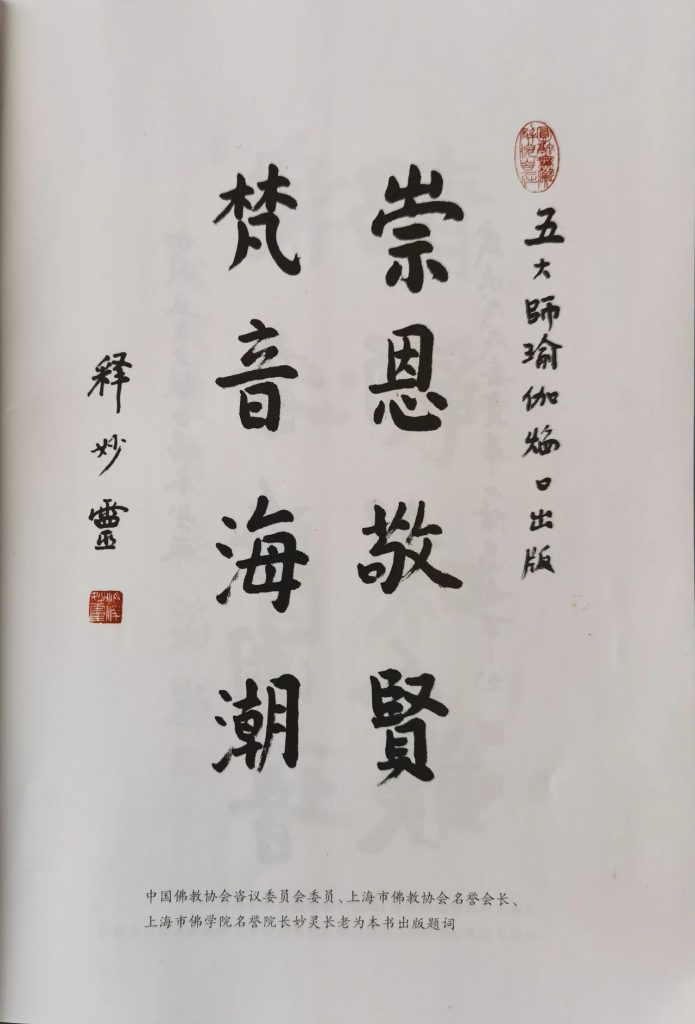 五大師瑜伽焰口出版
崇恩敬賢
梵音海潮
释妙靈
中国佛教协会咨议委员会委员、上海市佛教协会名誉会长、
上海市佛学院名誉院长妙灵长老为本书出版题词